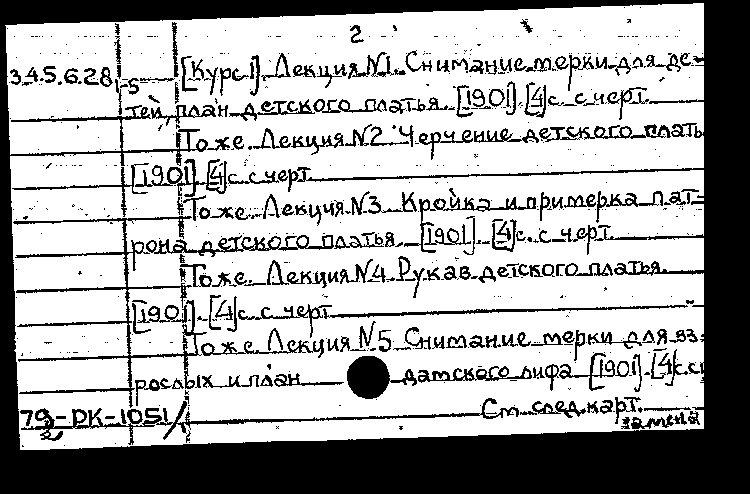 2
3.4.5.6.28,1-5 [Курс I]. Лекция N1. Снимание мерки для де-
тей, план детского платья. [1901]. [4]с. с черт.
То же. Лекция N2. Черчение детского плать
[1901]. [4]с. с черт.
То же. Лекция N3. Кройка и примерка пат-
рона детского платья. [1901]. [4]с. с черт.
То же. Лекция N4. Рукав детского платья.
[1901]. [4]с. с черт.
То же. Лекция N5. Снимание мерки для вз-
рослых и план дамского лифа. [1901]. [4]с. с
79-DK-1051/1 См. след. карт.
2